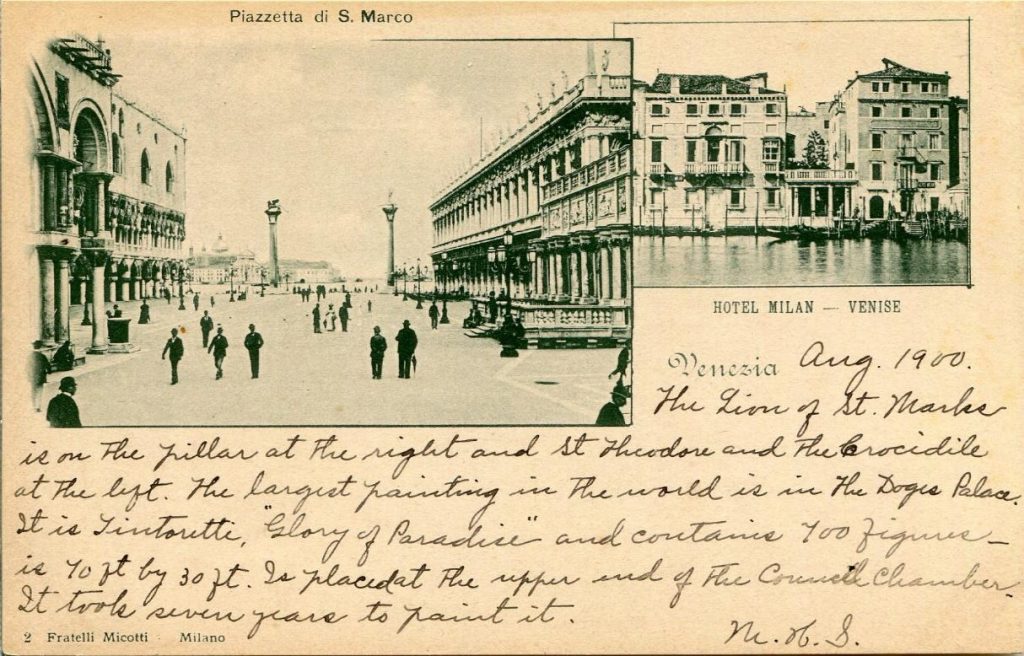 Piazzetta di S. Marco
HOTEL MILAN — VENISE
Venezia Aug. 1900.
The Lion of St. Marks
is on the pillar at the right and St Theodore and the Crocidile
at the left. The largest painting in the world is in the Doges Palace.
It is Tintorette, "Glory of Paradise" and contains 700 figures –
is 70 ft by 30 ft. Is placed at the upper end of the Council Chamber.
It took seven years to paint it.
M. H. S.
2 Fratelli Micotti - Milano